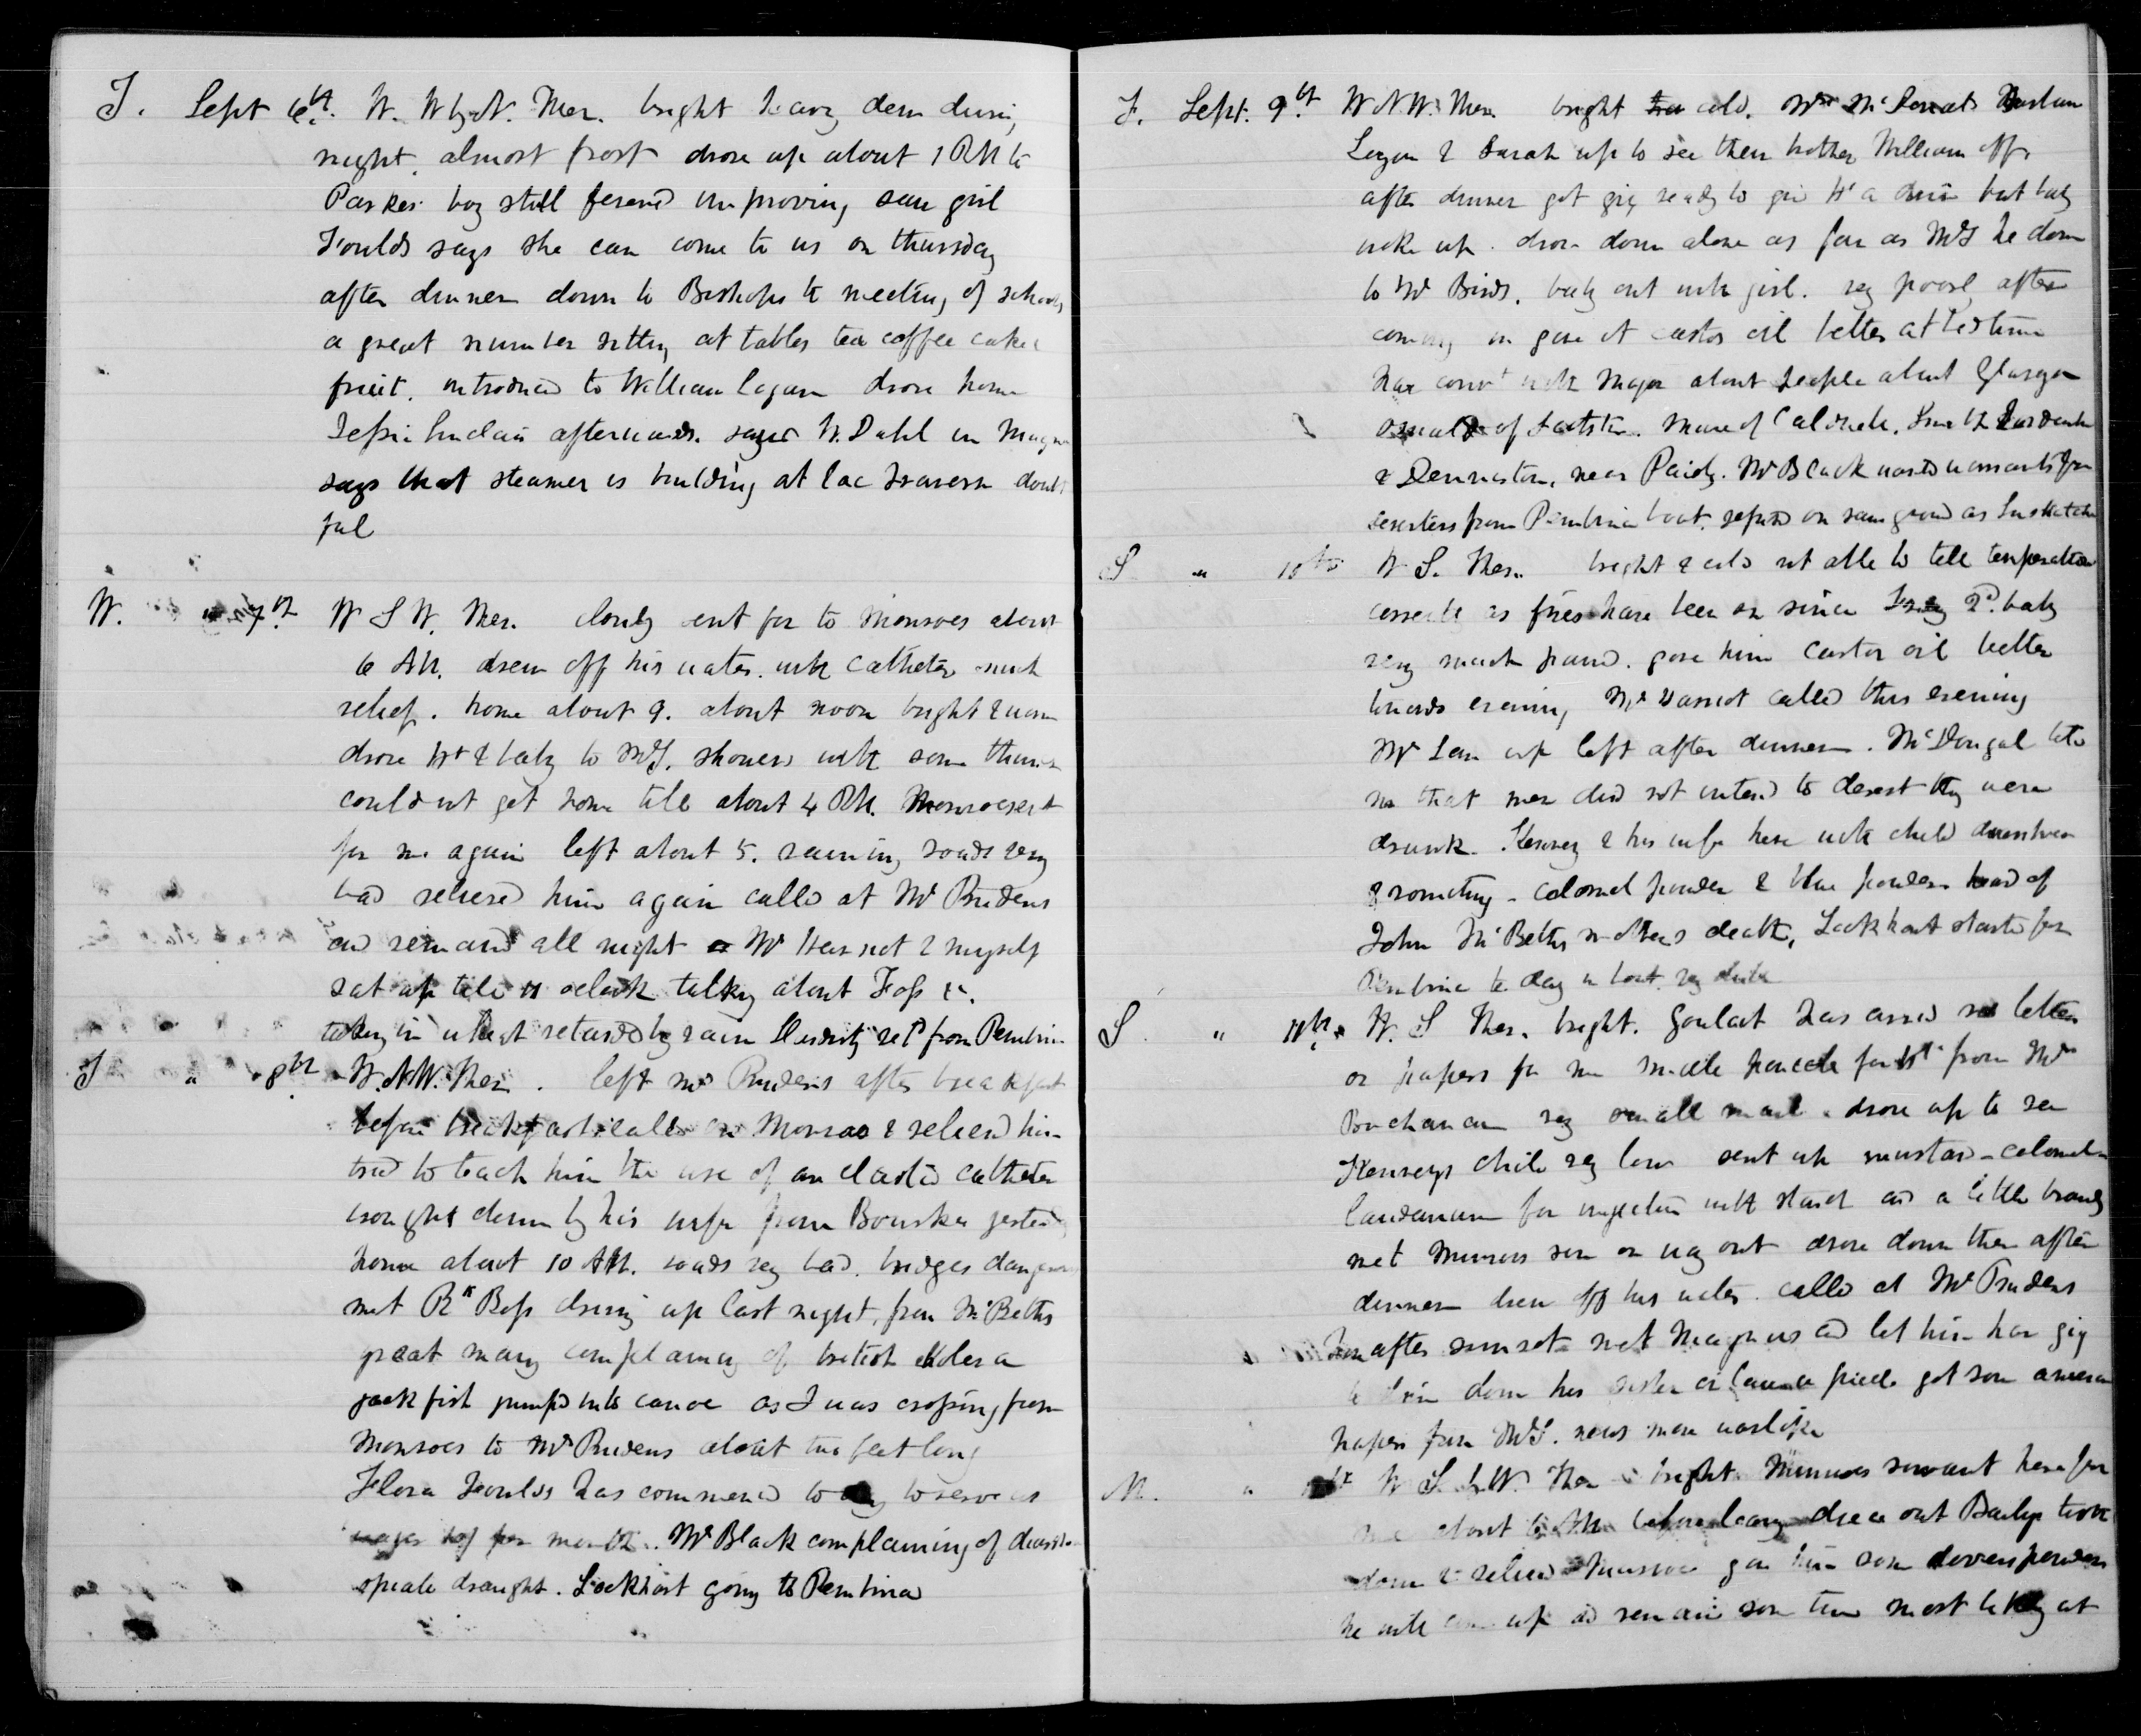 T. Sept 6th. W. W by N. Ther. bright heavy dew during
night, almost frost drove up about 1 PM to
Parkes boy still feverish improving saw girl
Foulds says she can come to us on thursday
after dinner down to Bishops to meeting of schools
a great number sitting at tables tea coffee cake &
fruit. introduced to William Logan drove home
Jessie Sinclair afterwards. W. Dahl in
says that steamer is building at lac Travers doubt
ful
W. " 7th W S W. Ther. cloudy sent for to Monroes about
6 AM. drew off his water with catheter much
relief. home about 9. about noon bright & warm
drove Ht & baby to McT. showers with some thunder
could not get home till about 4 PM. Monroe sent
for me again left about 5. raining roads very
bad relieved him again called at Mr Prudens
and remained all night Mr & myself
sat up till 11 oclock talking about Foss &c.
taking in wheat retarded by rain retd from Pembina
T " 8th W.N.W. Ther. left Mr Prudens after breakfast
before breakfast called on Monroe & relieved him
tried to teach him the use of an elastic catheter
brought down by his wife from Bourkes yesterday
home about 10 AM. roads very bad. bridges dangerous
met Rk Ross driving up last night, from McBeths
great many complaining of british cholera
jack fish jumped into canoe as I was crossing from
Monroes to Mr Prudens about two feet long
Flora Foulds has commenced to day to serve us
wages 10/ per month. Mr Black complaining of diarrhoea
opiate draught. Lockhart going to Pembina
F. Sept. 9th W N.W. Ther. bright cold. Mrs McDonald
Logan & Sarah up to see their brother William off
after dinner got gig ready to give Ht a drive but baby
woke up. drove down alone as far as McT he down
to Mr Birds. baby out with girl. very poorly after
coming in gave it castor oil better at bedtime
have convn with Major about people about Glasgow
of . Mure of Caldwell. Smith
& Denniston, near Paisley. Mr Black wants warrants for
deserters from Pembina boat. refused on same ground as Saskatchewan
S " 10th W S. Ther. bright & cold not able to tell temperature
correctly as fires have been on since 2d. baby
very much pained. gave him castor oil better
towards evening Mr called this evening
Mr up left after dinner. McDougal tells
me that men did not intend to desert they were
drunk. Kennedy & his wife here with child diarrhoea
& vomiting - calomel powder & blue powders heard of
John McBeths mothers death, Lockhart started for
Pembina to day in boat
S " 11th. W. S Ther. bright. Goulait has arrived no letters
or papers for me small parcel for Ht from Mrs
Buchanan very small mail. drove up to see
child very low sent up mustard - calomel
laudanum for injection with starch and a little brandy
met Munroes son on way out drove down then after
dinner drew off his water. called at Mr Prudens
home after sunset met Magnus and let him have gig
to drive down his sister got some american
papers from McT. news more warlike
M. " 12th W S by W. Ther bright Munroes servant here for
me about 6 AM before leaving drew out Baileys tooth
down & relieved Munroe gave him some dovers powders
he will come up and remain some time most likely at